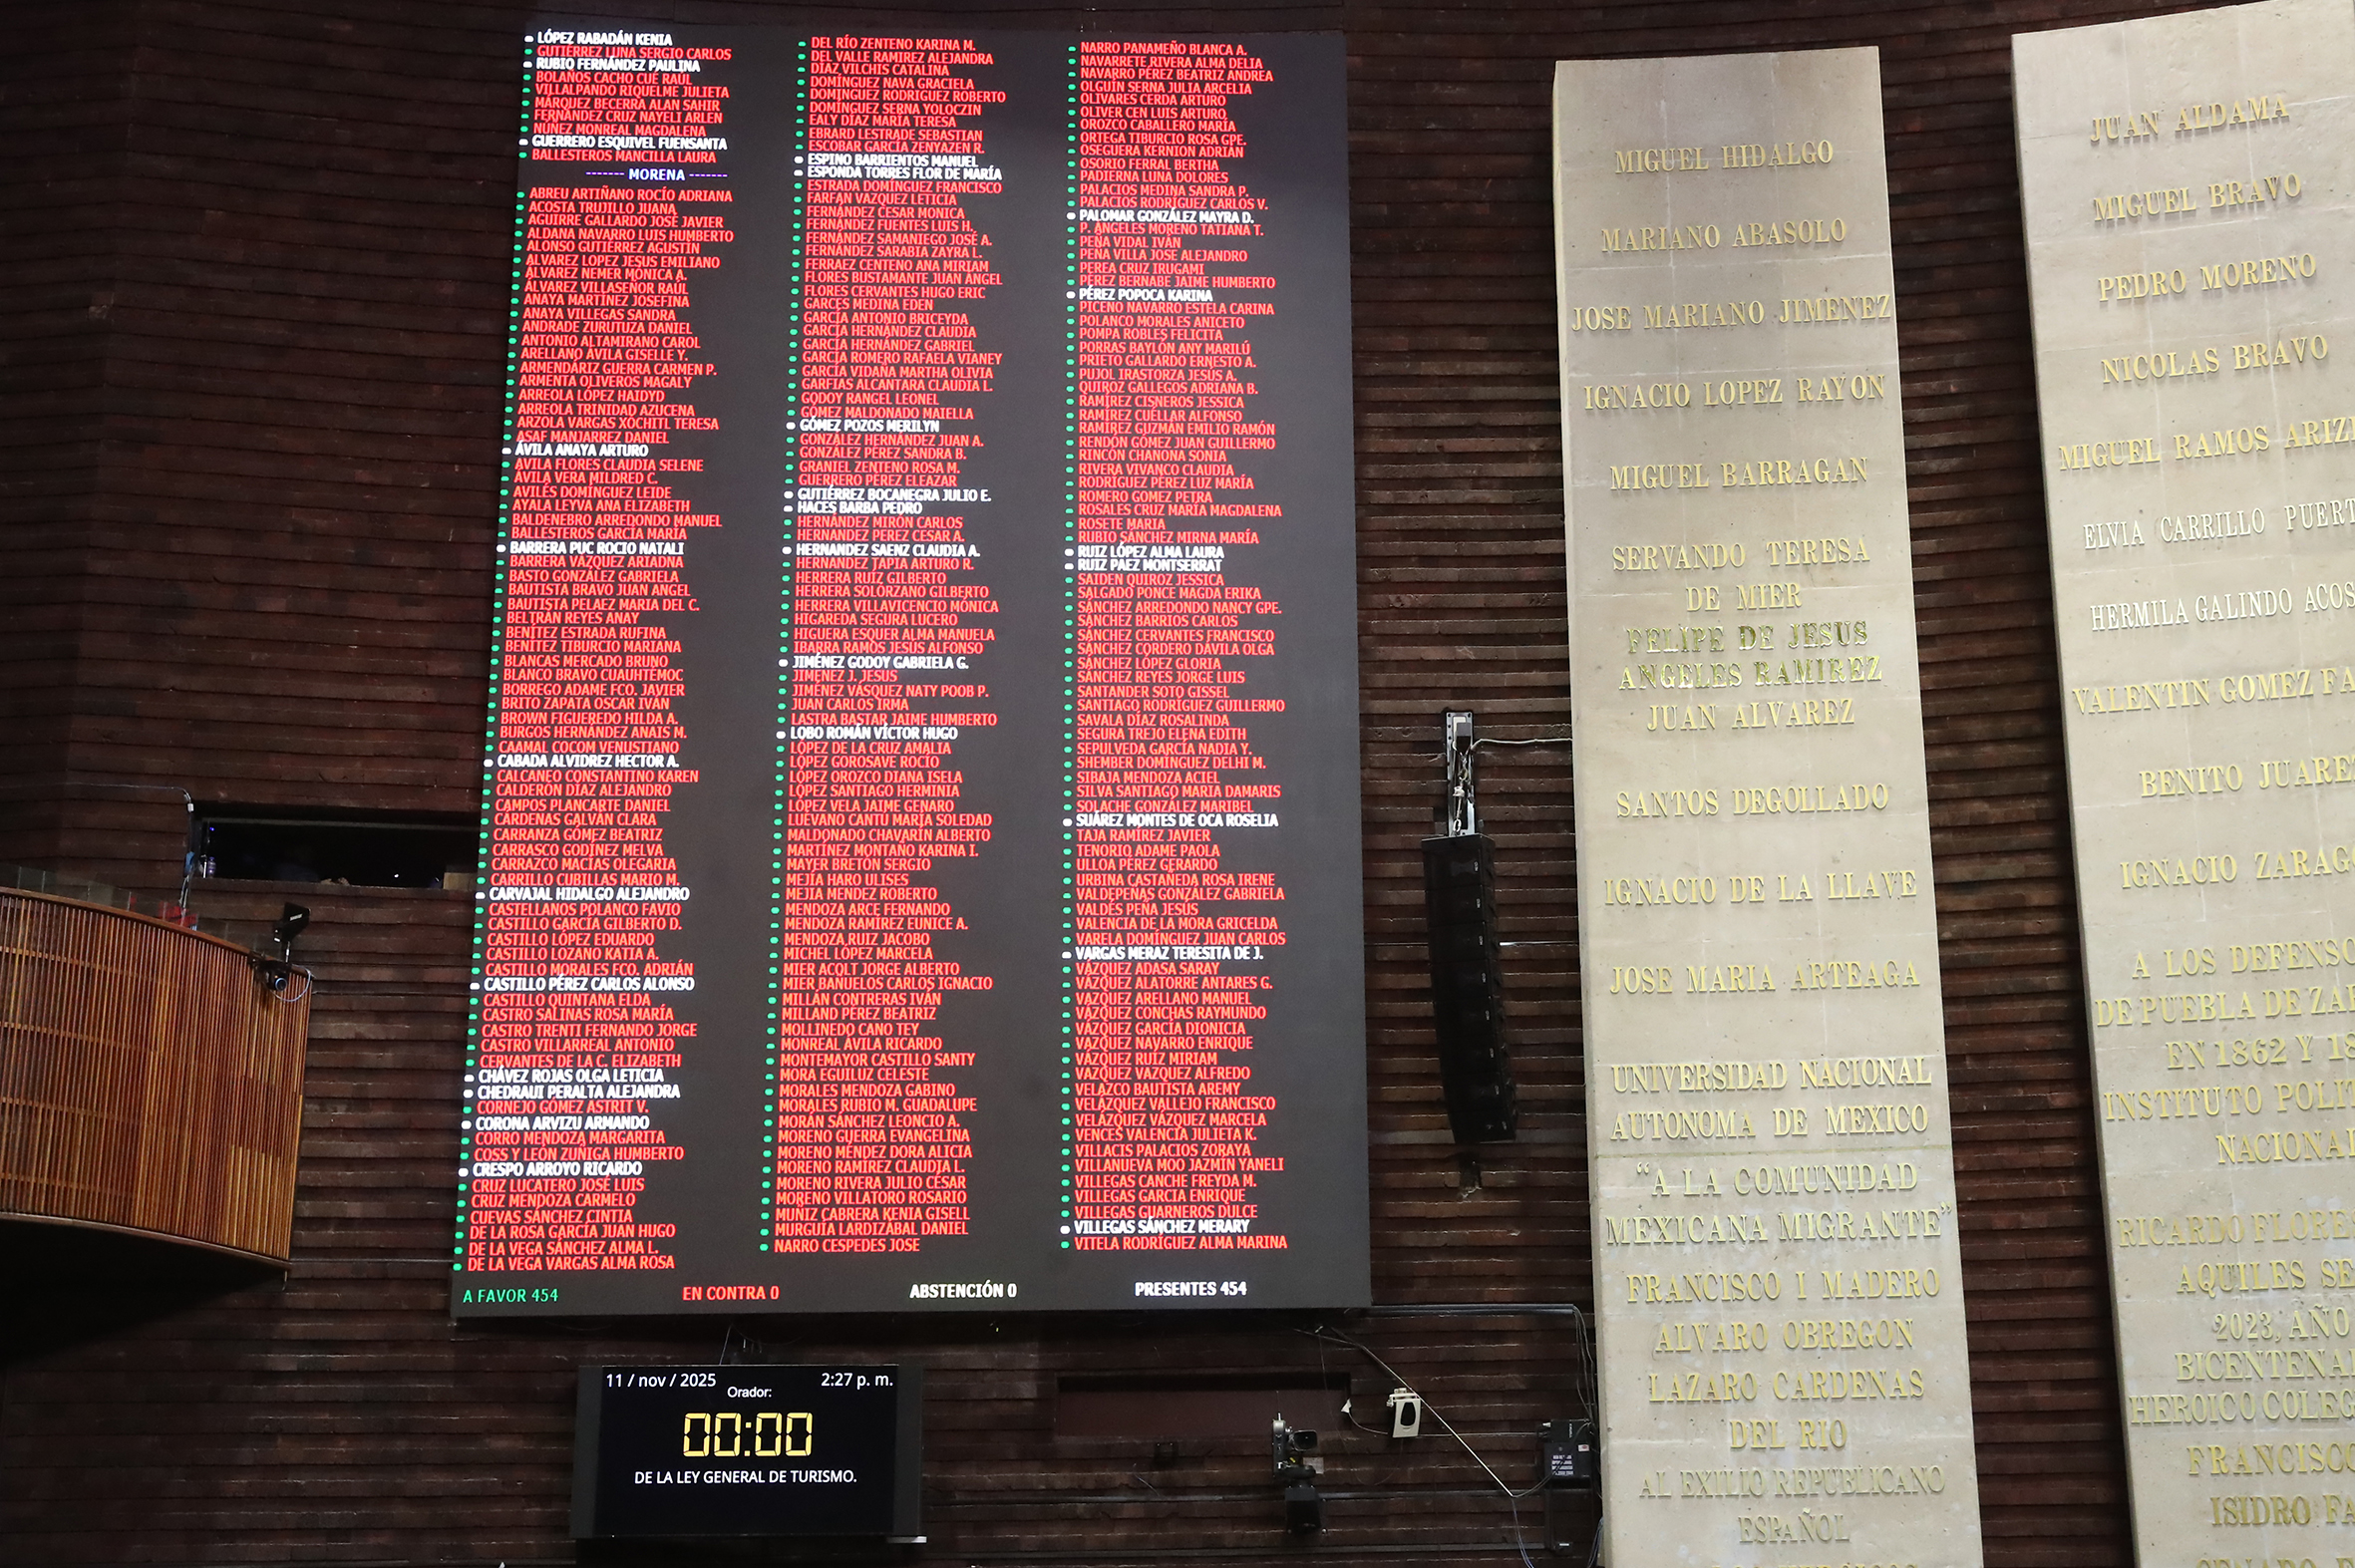 LÓPEZ RABADÁN KENIA
GUTIÉRREZ LUNA SERGIO CARLOS
RUBIO FERNÁNDEZ PAULINA
BOLAÑOS CACHO CUÉ RAÚL
VILLALPANDO RIQUELME JULIETA
MÁRQUEZ BECERRA ALAN SAHIR
FERNÁNDEZ CRUZ NAYELI ARLEN
NÚÑEZ MONREAL MAGDALENA
GUERRERO ESQUIVEL FUENSANTA
BALLESTEROS MANCILLA LAURA
------- MORENA -------
ABREU ARTIÑANO ROCÍO ADRIANA
ACOSTA TRUJILLO JUANA
AGUIRRE GALLARDO JOSÉ JAVIER
ALDANA NAVARRO LUIS HUMBERTO
ALONSO GUTIÉRREZ AGUSTÍN
ÁLVAREZ LÓPEZ JESÚS EMILIANO
ÁLVAREZ NEMER MÓNICA A.
ÁLVAREZ VILLASEÑOR RAÚL
ANAYA MARTÍNEZ JOSEFINA
ANAYA VILLEGAS SANDRA
ANDRADE ZURUTUZA DANIEL
ANTONIO ALTAMIRANO CAROL
ARELLANO ÁVILA GISELLE Y.
ARMENDÁRIZ GUERRA CARMEN P.
ARMENTA OLIVEROS MAGALY
ARREOLA LÓPEZ HAIDYD
ARREOLA TRINIDAD AZUCENA
ARZOLA VARGAS XÓCHITL TERESA
ASAF MANJARREZ DANIEL
ÁVILA ANAYA ARTURO
ÁVILA FLORES CLAUDIA SELENE
ÁVILA VERA MILDRED C.
AVILÉS DOMÍNGUEZ LEIDE
AYALA LEYVA ANA ELIZABETH
BALDENEBRO ARREDONDO MANUEL
BALLESTEROS GARCÍA MARÍA
BARRERA PUC ROCIO NATALI
BARRERA VÁZQUEZ ARIADNA
BASTO GONZÁLEZ GABRIELA
BAUTISTA BRAVO JUAN ÁNGEL
BAUTISTA PELÁEZ MARIA DEL C.
BELTRÁN REYES ANAY
BENÍTEZ ESTRADA RUFINA
BENÍTEZ TIBURCIO MARIANA
BLANCAS MERCADO BRUNO
BLANCO BRAVO CUAUHTÉMOC
BORREGO ADAME FCO. JAVIER
BRITO ZAPATA OSCAR IVÁN
BROWN FIGUEREDO HILDA A.
BURGOS HERNÁNDEZ ANAIS M.
CAAMAL COCOM VENUSTIANO
CABADA ALVIDREZ HECTOR A.
CALCÁNEO CONSTANTINO KAREN
CALDERÓN DÍAZ ALEJANDRO
CAMPOS PLANCARTE DANIEL
CÁRDENAS GALVÁN CLARA
CARRANZA GÓMEZ BEATRIZ
CARRASCO GODÍNEZ MELVA
CARRAZCO MACÍAS OLEGARIA
CARRILLO CUBILLAS MARIO M.
CARVAJAL HIDALGO ALEJANDRO
CASTELLANOS POLANCO FAVIO
CASTILLO GARCÍA GILBERTO D.
CASTILLO LÓPEZ EDUARDO
CASTILLO LOZANO KATIA A.
CASTILLO MORALES FCO. ADRIÁN
CASTILLO PÉREZ CARLOS ALONSO
CASTILLO QUINTANA ELDA
CASTRO SALINAS ROSA MARÍA
CASTRO TRENTI FERNANDO JORGE
CASTRO VILLARREAL ANTONIO
CERVANTES DE LA C. ELIZABETH
CHÁVEZ ROJAS OLGA LETICIA
CHEDRAUI PERALTA ALEJANDRA
CORNEJO GÓMEZ ASTRIT V.
CORONA ARVIZU ARMANDO
CORRO MENDOZA MARGARITA
COSS Y LEÓN ZUÑIGA HUMBERTO
CRESPO ARROYO RICARDO
CRUZ LUCATERO JOSÉ LUIS
CRUZ MENDOZA CARMELO
CUEVAS SÁNCHEZ CINTIA
DE LA ROSA GARCÍA JUAN HUGO
DE LA VEGA SÁNCHEZ ALMA L.
DE LA VEGA VARGAS ALMA ROSA
DEL RÍO ZENTENO KARINA M.
DEL VALLE RAMIREZ ALEJANDRA
DÍAZ VILCHIS CATALINA
DOMÍNGUEZ NAVA GRACIELA
DOMINGUEZ RODRIGUEZ ROBERTO
DOMÍNGUEZ SERNA YOLOCZIN
EALY DÍAZ MARÍA TERESA
EBRARD LESTRADE SEBASTIAN
ESCOBAR GARCÍA ZENYAZEN R.
ESPINO BARRIENTOS MANUEL
ESPONDA TORRES FLOR DE MARÍA
ESTRADA DOMÍNGUEZ FRANCISCO
FARFÁN VÁZQUEZ LETICIA
FERNÁNDEZ CÉSAR MÓNICA
FERNÁNDEZ FUENTES LUIS H.
FERNÁNDEZ SAMANIEGO JOSÉ A.
FERNÁNDEZ SARABIA ZAYRA L.
FERRÁEZ CENTENO ANA MIRIAM
FLORES BUSTAMANTE JUAN ÁNGEL
FLORES CERVANTES HUGO ERIC
GARCÉS MEDINA EDÉN
GARCÍA ANTONIO BRICEYDA
GARCÍA HERNÁNDEZ CLAUDIA
GARCÍA HERNÁNDEZ GABRIEL
GARCÍA ROMERO RAFAELA VIANEY
GARCÍA VIDAÑA MARTHA OLIVIA
GARFIAS ALCANTARA CLAUDIA L.
GODOY RANGEL LEONEL
GÓMEZ MALDONADO MAIELLA
GÓMEZ POZOS MERILYN
GONZÁLEZ HERNÁNDEZ JUAN A.
GONZÁLEZ PÉREZ SANDRA B.
GRANIEL ZENTENO ROSA M.
GUERRERO PÉREZ ELEAZAR
GUTIÉRREZ BOCANEGRA JULIO E.
HACES BARBA PEDRO
HERNÁNDEZ MIRÓN CARLOS
HERNÁNDEZ PÉREZ CÉSAR A.
HERNANDEZ SAENZ CLAUDIA A.
HERNÁNDEZ TAPIA ARTURO R.
HERRERA RUÍZ GILBERTO
HERRERA SOLÓRZANO GILBERTO
HERRERA VILLAVICENCIO MÓNICA
HIGAREDA SEGURA LUCERO
HIGUERA ESQUER ALMA MANUELA
IBARRA RAMOS JESÚS ALFONSO
JIMÉNEZ GODOY GABRIELA G.
JIMÉNEZ J. JESÚS
JIMÉNEZ VÁSQUEZ NATY POOB P.
JUAN CARLOS IRMA
LASTRA BASTAR JAIME HUMBERTO
LOBO ROMÁN VÍCTOR HUGO
LÓPEZ DE LA CRUZ AMALIA
LÓPEZ GOROSAVE ROCÍO
LÓPEZ OROZCO DIANA ISELA
LÓPEZ SANTIAGO HERMINIA
LÓPEZ VELA JAIME GENARO
LUÉVANO CANTÚ MARÍA SOLEDAD
MALDONADO CHAVARÍN ALBERTO
MARTÍNEZ MONTAÑO KARINA I.
MAYER BRETÓN SERGIO
MEJÍA HARO ULISES
MEJÍA MÉNDEZ ROBERTO
MENDOZA ARCE FERNANDO
MENDOZA RAMÍREZ EUNICE A.
MENDOZA RUÍZ JACOBO
MICHEL LÓPEZ MARCELA
MIER ACOLT JORGE ALBERTO
MIER BAÑUELOS CARLOS IGNACIO
MILLÁN CONTRERAS IVÁN
MILLAND PÉREZ BEATRIZ
MOLLINEDO CANO TEY
MONREAL ÁVILA RICARDO
MONTEMAYOR CASTILLO SANTY
MORA EGUILUZ CELESTE
MORALES MENDOZA GABINO
MORALES RUBIO M. GUADALUPE
MORÁN SÁNCHEZ LEONCIO A.
MORENO GUERRA EVANGELINA
MORENO MÉNDEZ DORA ALICIA
MORENO RAMÍREZ CLAUDIA L.
MORENO RIVERA JULIO CÉSAR
MORENO VILLATORO ROSARIO
MUÑIZ CABRERA KENIA GISELL
MURGUÍA LARDIZÁBAL DANIEL
NARRO CÉSPEDES JOSÉ
NARRO PANAMEÑO BLANCA A.
NAVARRETE RIVERA ALMA DELIA
NAVARRO PÉREZ BEATRIZ ANDREA
OLGUÍN SERNA JULIA ARCELIA
OLIVARES CERDA ARTURO
OLIVER CEN LUIS ARTURO
OROZCO CABALLERO MARÍA
ORTEGA TIBURCIO ROSA GPE.
OSEGUERA KERNION ADRIÁN
OSORIO FERRAL BERTHA
PADIERNA LUNA DOLORES
PALACIOS MEDINA SANDRA P.
PALACIOS RODRÍGUEZ CARLOS V.
PALOMAR GONZÁLEZ MAYRA D.
P. ÁNGELES MORENO TATIANA T.
PEÑA VIDAL IVÁN
PEÑA VILLA JOSÉ ALEJANDRO
PEREA CRUZ IRUGAMI
PÉREZ BERNABÉ JAIME HUMBERTO
PÉREZ POPOCA KARINA
PICENO NAVARRO ESTELA CARINA
POLANCO MORALES ANICETO
POMPA ROBLES FELICITA
PORRAS BAYLÓN ANY MARILÚ
PRIETO GALLARDO ERNESTO A.
PUJOL IRASTORZA JESÚS A.
QUIROZ GALLEGOS ADRIANA B.
RAMÍREZ CISNEROS JESSICA
RAMÍREZ CUÉLLAR ALFONSO
RAMÍREZ GUZMÁN EMILIO RAMÓN
RENDÓN GÓMEZ JUAN GUILLERMO
RINCÓN CHANONA SONIA
RIVERA VIVANCO CLAUDIA
RODRÍGUEZ PÉREZ LUZ MARÍA
ROMERO GÓMEZ PETRA
ROSALES CRUZ MARÍA MAGDALENA
ROSETE MARIA
RUBIO SÁNCHEZ MIRNA MARÍA
RUIZ LÓPEZ ALMA LAURA
RUIZ PAEZ MONTSERRAT
SAIDEN QUIROZ JESSICA
SALGADO PONCE MAGDA ERIKA
SÁNCHEZ ARREDONDO NANCY GPE.
SÁNCHEZ BARRIOS CARLOS
SÁNCHEZ CERVANTES FRANCISCO
SÁNCHEZ CORDERO DÁVILA OLGA
SÁNCHEZ LÓPEZ GLORIA
SÁNCHEZ REYES JORGE LUIS
SANTANDER SOTO GISSEL
SANTIAGO RODRÍGUEZ GUILLERMO
SAVALA DÍAZ ROSALINDA
SEGURA TREJO ELENA EDITH
SEPÚLVEDA GARCÍA NADIA Y.
SHEMBER DOMÍNGUEZ DELHI M.
SIBAJA MENDOZA ACIEL
SILVA SANTIAGO MARIA DAMARIS
SOLACHE GONZÁLEZ MARIBEL
SUÁREZ MONTES DE OCA ROSELIA
TAJA RAMÍREZ JAVIER
TENORIO ADAME PAOLA
ULLOA PÉREZ GERARDO
URBINA CASTAÑEDA ROSA IRENE
VALDEPEÑAS GONZÁLEZ GABRIELA
VALDÉS PEÑA JESÚS
VALENCIA DE LA MORA GRICELDA
VARELA DOMÍNGUEZ JUAN CARLOS
VARGAS MERAZ TERESITA DE J.
VÁZQUEZ ADASA SARAY
VÁZQUEZ ALATORRE ANTARES G.
VÁZQUEZ ARELLANO MANUEL
VÁZQUEZ CONCHAS RAYMUNDO
VÁZQUEZ GARCÍA DIONICIA
VÁZQUEZ NAVARRO ENRIQUE
VÁZQUEZ RUÍZ MIRIAM
VÁZQUEZ VÁZQUEZ ALFREDO
VELAZCO BAUTISTA AREMY
VELÁZQUEZ VALLEJO FRANCISCO
VELÁZQUEZ VÁZQUEZ MARCELA
VENCES VALENCIA JULIETA K.
VILLACIS PALACIOS ZORAYA
VILLANUEVA MOO JAZMÍN YANELI
VILLEGAS CANCHÉ FREYDA M.
VILLEGAS GARCÍA ENRIQUE
VILLEGAS GUARNEROS DULCE
VILLEGAS SÁNCHEZ MERARY
VITELA RODRÍGUEZ ALMA MARINA
A FAVOR 454
EN CONTRA 0
ABSTENCIÓN 0
PRESENTES 454
11 / nov / 2025
2:27 p. m.
Orador:
00:00
DE LA LEY GENERAL DE TURISMO.
MIGUEL HIDALGO
MARIANO ABASOLO
JOSE MARIANO JIMENEZ
IGNACIO LOPEZ RAYON
MIGUEL BARRAGAN
SERVANDO TERESA
DE MIER
FELIPE DE JESUS
ANGELES RAMIREZ
JUAN ALVAREZ
SANTOS DEGOLLADO
IGNACIO DE LA LLAVE
JOSE MARIA ARTEAGA
UNIVERSIDAD NACIONAL
AUTONOMA DE MEXICO
"A LA COMUNIDAD
MEXICANA MIGRANTE"
FRANCISCO I MADERO
ALVARO OBREGON
LAZARO CARDENAS
DEL RIO
AL EXILIO REPUBLICANO
ESPAÑOL
JUAN ALDAMA
MIGUEL BRAVO
PEDRO MORENO
NICOLAS BRAVO
MIGUEL RAMOS ARIZ
ELVIA CARRILLO PUERT
HERMILA GALINDO ACOS
VALENTIN GOMEZ FA
BENITO JUARE
IGNACIO ZARAG
A LOS DEFENSO
DE PUEBLA DE ZAR
EN 1862 Y 18
INSTITUTO POLIT
NACIONAL
RICARDO FLORE
AQUILES SE
2023, AÑO
BICENTENA
HEROICO COLEG
FRANCISCO
ISIDRO FA